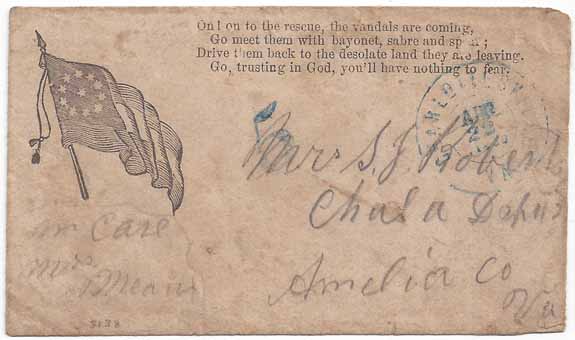 On! on to the rescue, the vandals are coming,
Go meet them with bayonet, sabre and spear;
Drive them back to the desolate land they are leaving.
Go, trusting in God, you'll have nothing to fear.
AUG
Mrs S. J. Robert
Chula Depot
Amelia Co
Va
in care
Mrs
Means
5138